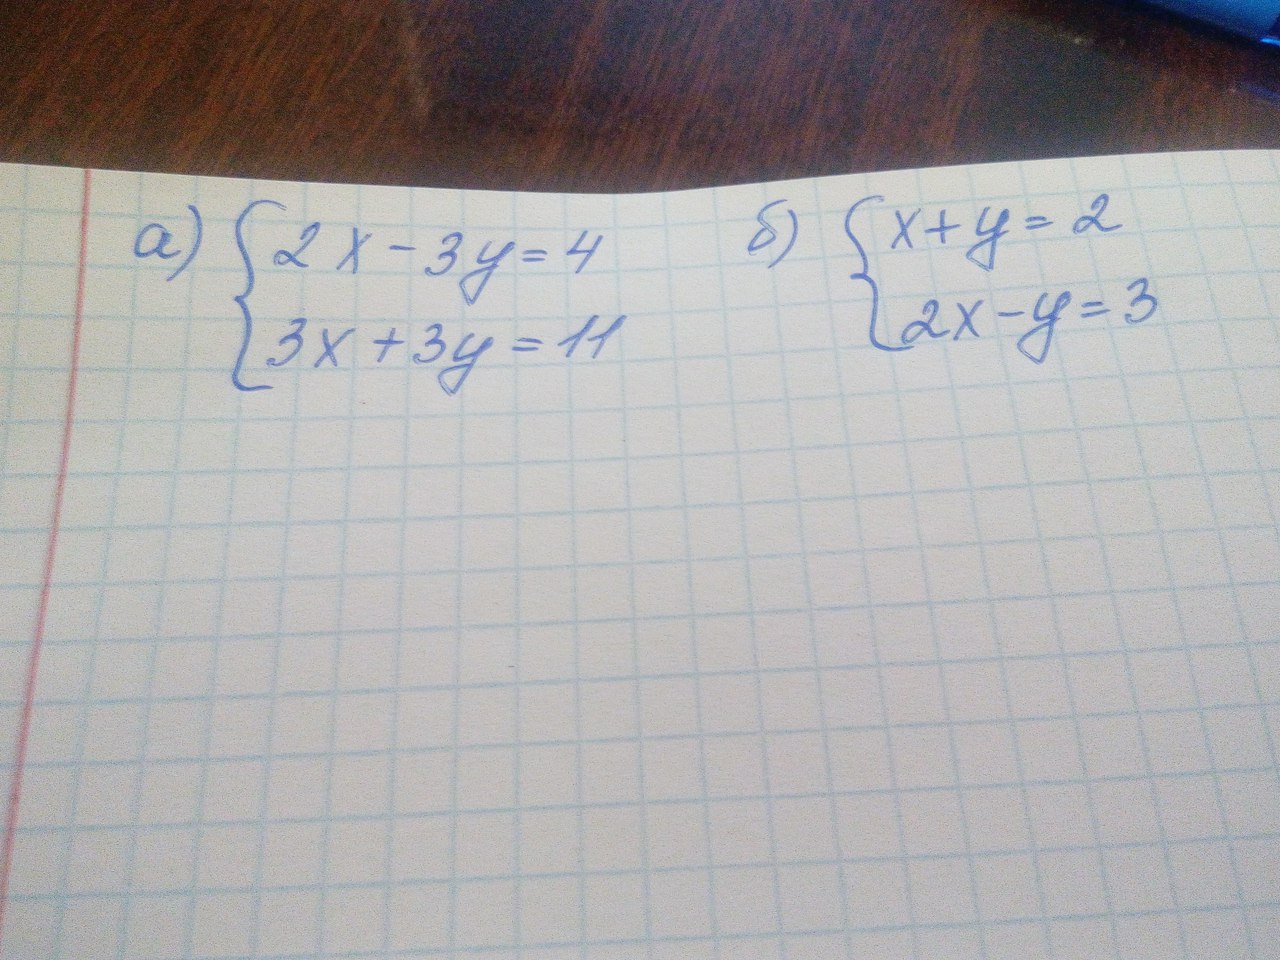 а) { 2x - 3y = 4
3x + 3y = 11
б) { x + y = 2
2x - y = 3